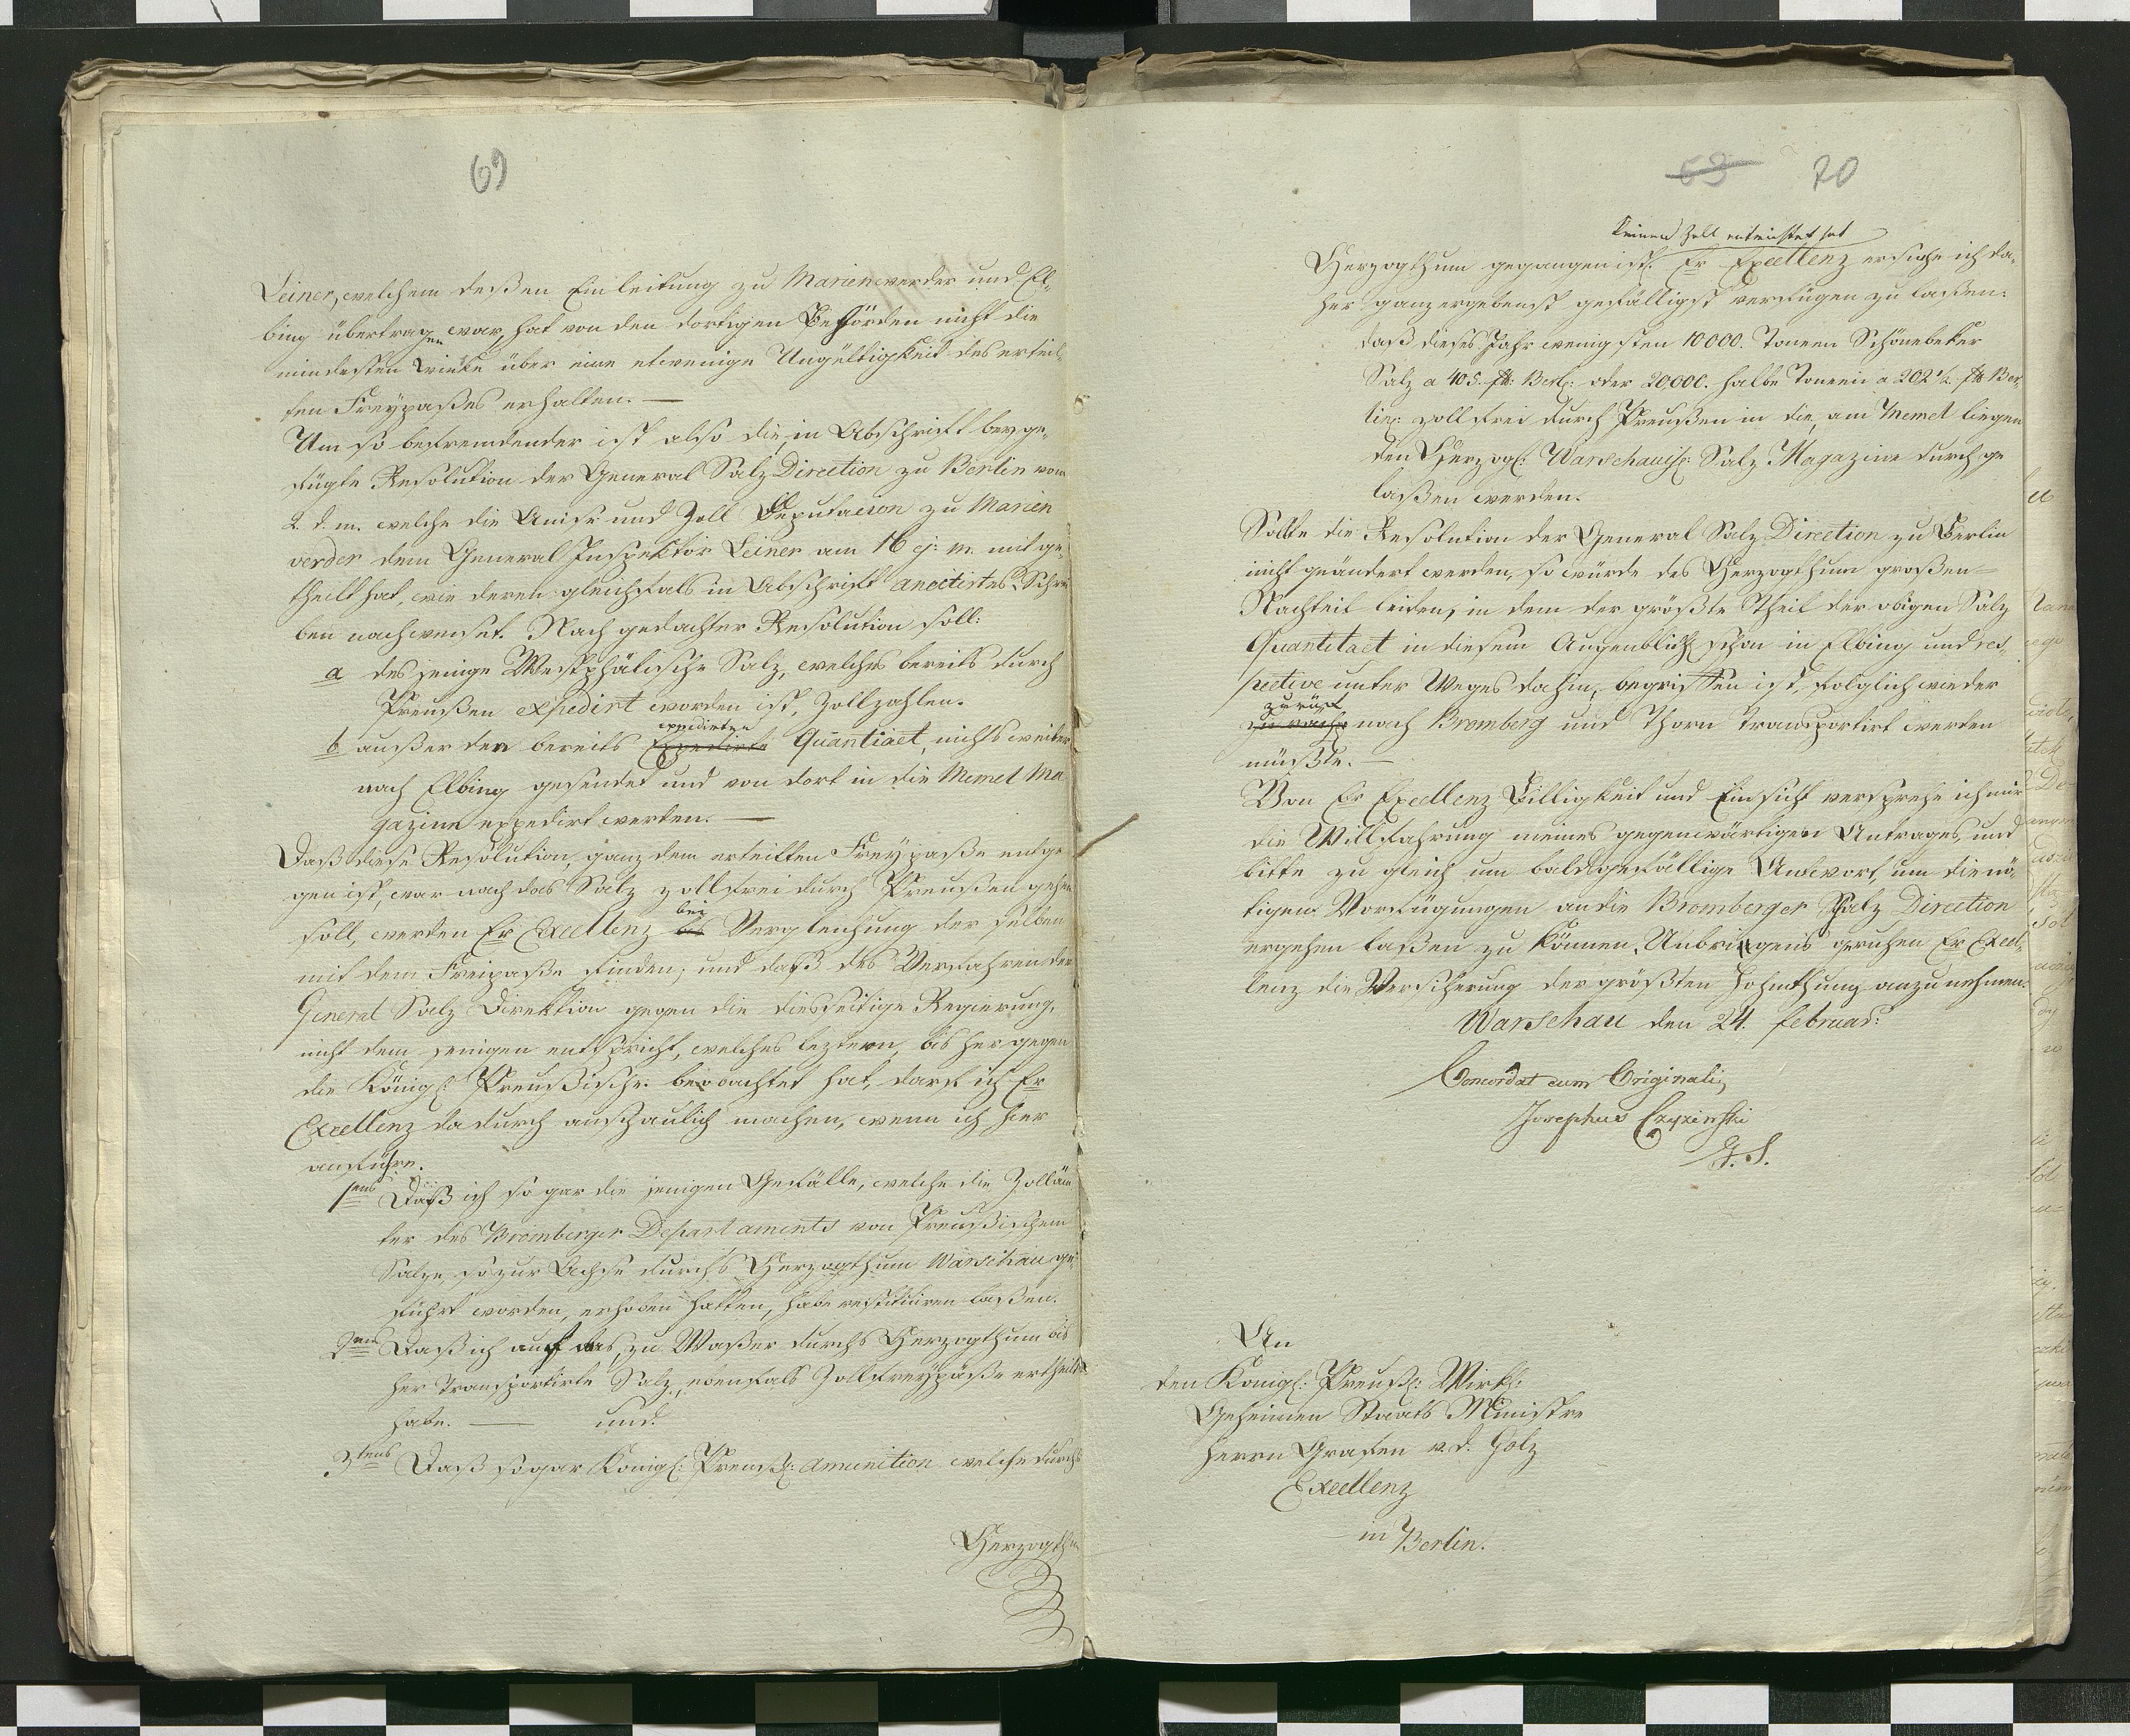 69
Leiner, welchem deßen Einleitung zu Marienwerder und El¬
bing übertragen war, hat von den dortigen Behörden nicht die
mindesten Winke über eine etwenige Ungültigkeit des erteil¬
ten Freypaßes erhalten. —
Um so befremdender ist also die, in Abschrift beyge¬
fügte Resolution der General Salz Direction zu Berlin vom
2. d. m. welche die Accise und Zoll Deputacion zu Marien
verder dem General Inspektor Leiner am 16 ej: m. mit ge¬
theilt hat, wie deren gleichfals in Abschrift anectirtes Schrei
ben nachweiset. Nach gedachter Resolution soll:
a des jenige Westphälische Salz, welches bereits durch
Preußen expedirt worden ist, Zoll zahlen.
b außer der bereits expedirten Quantiaet, nichts weiter
nach Elbing gesendet und von dort in die Memel Ma
gazine expedirt werden. —
Daß diese Resolution, ganz dem erteilten Freypaße entge
gen ist, war nach das Salz zollfrei durch Preußen gehen
soll, werden Er Excellenz bei Vergleichung der selben
mit dem Freipaße finden, und daß des Verfahren der
General Salz Direktion gegen die diesseitige Regierung,
nicht dem jenigen entspricht, welches leztern, bis her gegen
die Königl: Preußische: beobachtet hat, darf ich Er
Excellenz dadurch anschaulich machen, wenn ich hier
anführe.
1tens Daß ich so gar die jenigen Gefälle, welche die Zolläm
ter des Bromberger Departaments von Preußischem
Salze, so zur Achse durchs Herzogthum Warschau ge¬
führt worden, erhoben hatten, habe restituiren laßen.
2tens Daß ich auf das, zu Waßer durchs Herzogthum bis
her transportirte Salz, ebenfals Zollfreypäße ertheilt
habe. — und.
3tens Daß sogar Königl: Preuß: Amunition welche durchs
Herzogthum
63 70
keinen Zoll entrichtet hat
Herzogthum gegangen ist. Er Excellenz ersuche ich da¬
her ganz ergebenst gefälligst verfügen zu laßen:
daß dieses Jahr wenigsten 10000. Tonnen Schönebeker
Salz a 405. ℔: Berl: oder 20000. halbe Tonnen a 202 ½ ℔ Ber
lin: zollfrei durch Preußen in die, am Memel liegen
den Herzogl: Warschauisch: Salz Magazine durch ge
laßen werden.
Solte die Resolution der General Salz Direction zu Berlin
nicht geändert werden, so würde des Herzogthum großen
Nachteil leiden, in dem der größte Theil der obigen Salz
Quantitaet in diesem Augenblick schon in Elbing und res¬
pective unter Weges dahin, begriffen ist, folglich wieder
zurück nach Bromberg und Thorn transportirt werden
müßte. —
Von Er Excellenz Billigkeit und Einsicht verspreche ich mir
die Willfahrung meines gegenwärtigen Antrages, und
bitte zu gleich um bald gefällige Antwort, um die nö¬
tigen Verfügungen an die Bromberger Salz Direction
ergehen laßen zu können, Uibrigens geruhen Er Excel¬
lenz die Versicherung der größten Hohachtung anzunehmen.
Warschau den 24. Februar:
Concordat cum Originali,
Josephus
G. S.
An
den Königl: Preuß: Wirkl:
Geheimen Staats Ministre
Herrn Grafen v. d. Golz
Excellenz
in Berlin.